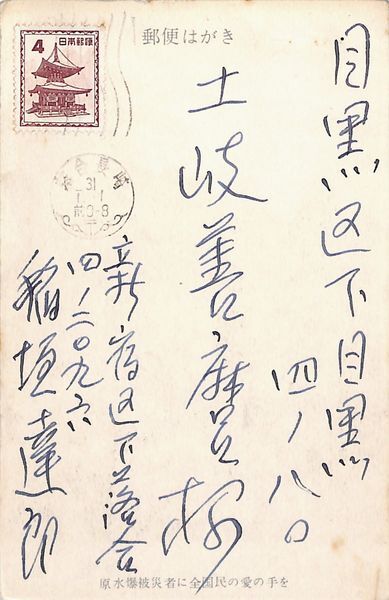 郵便はがき
4 日本郵便
31
1.1
前0-8
目黒区下目黒
四ノ八〇
土岐善麿様
新宿区下落合
四ノ二〇九六
稲垣達郎
原水爆被災者に全国民の愛の手を